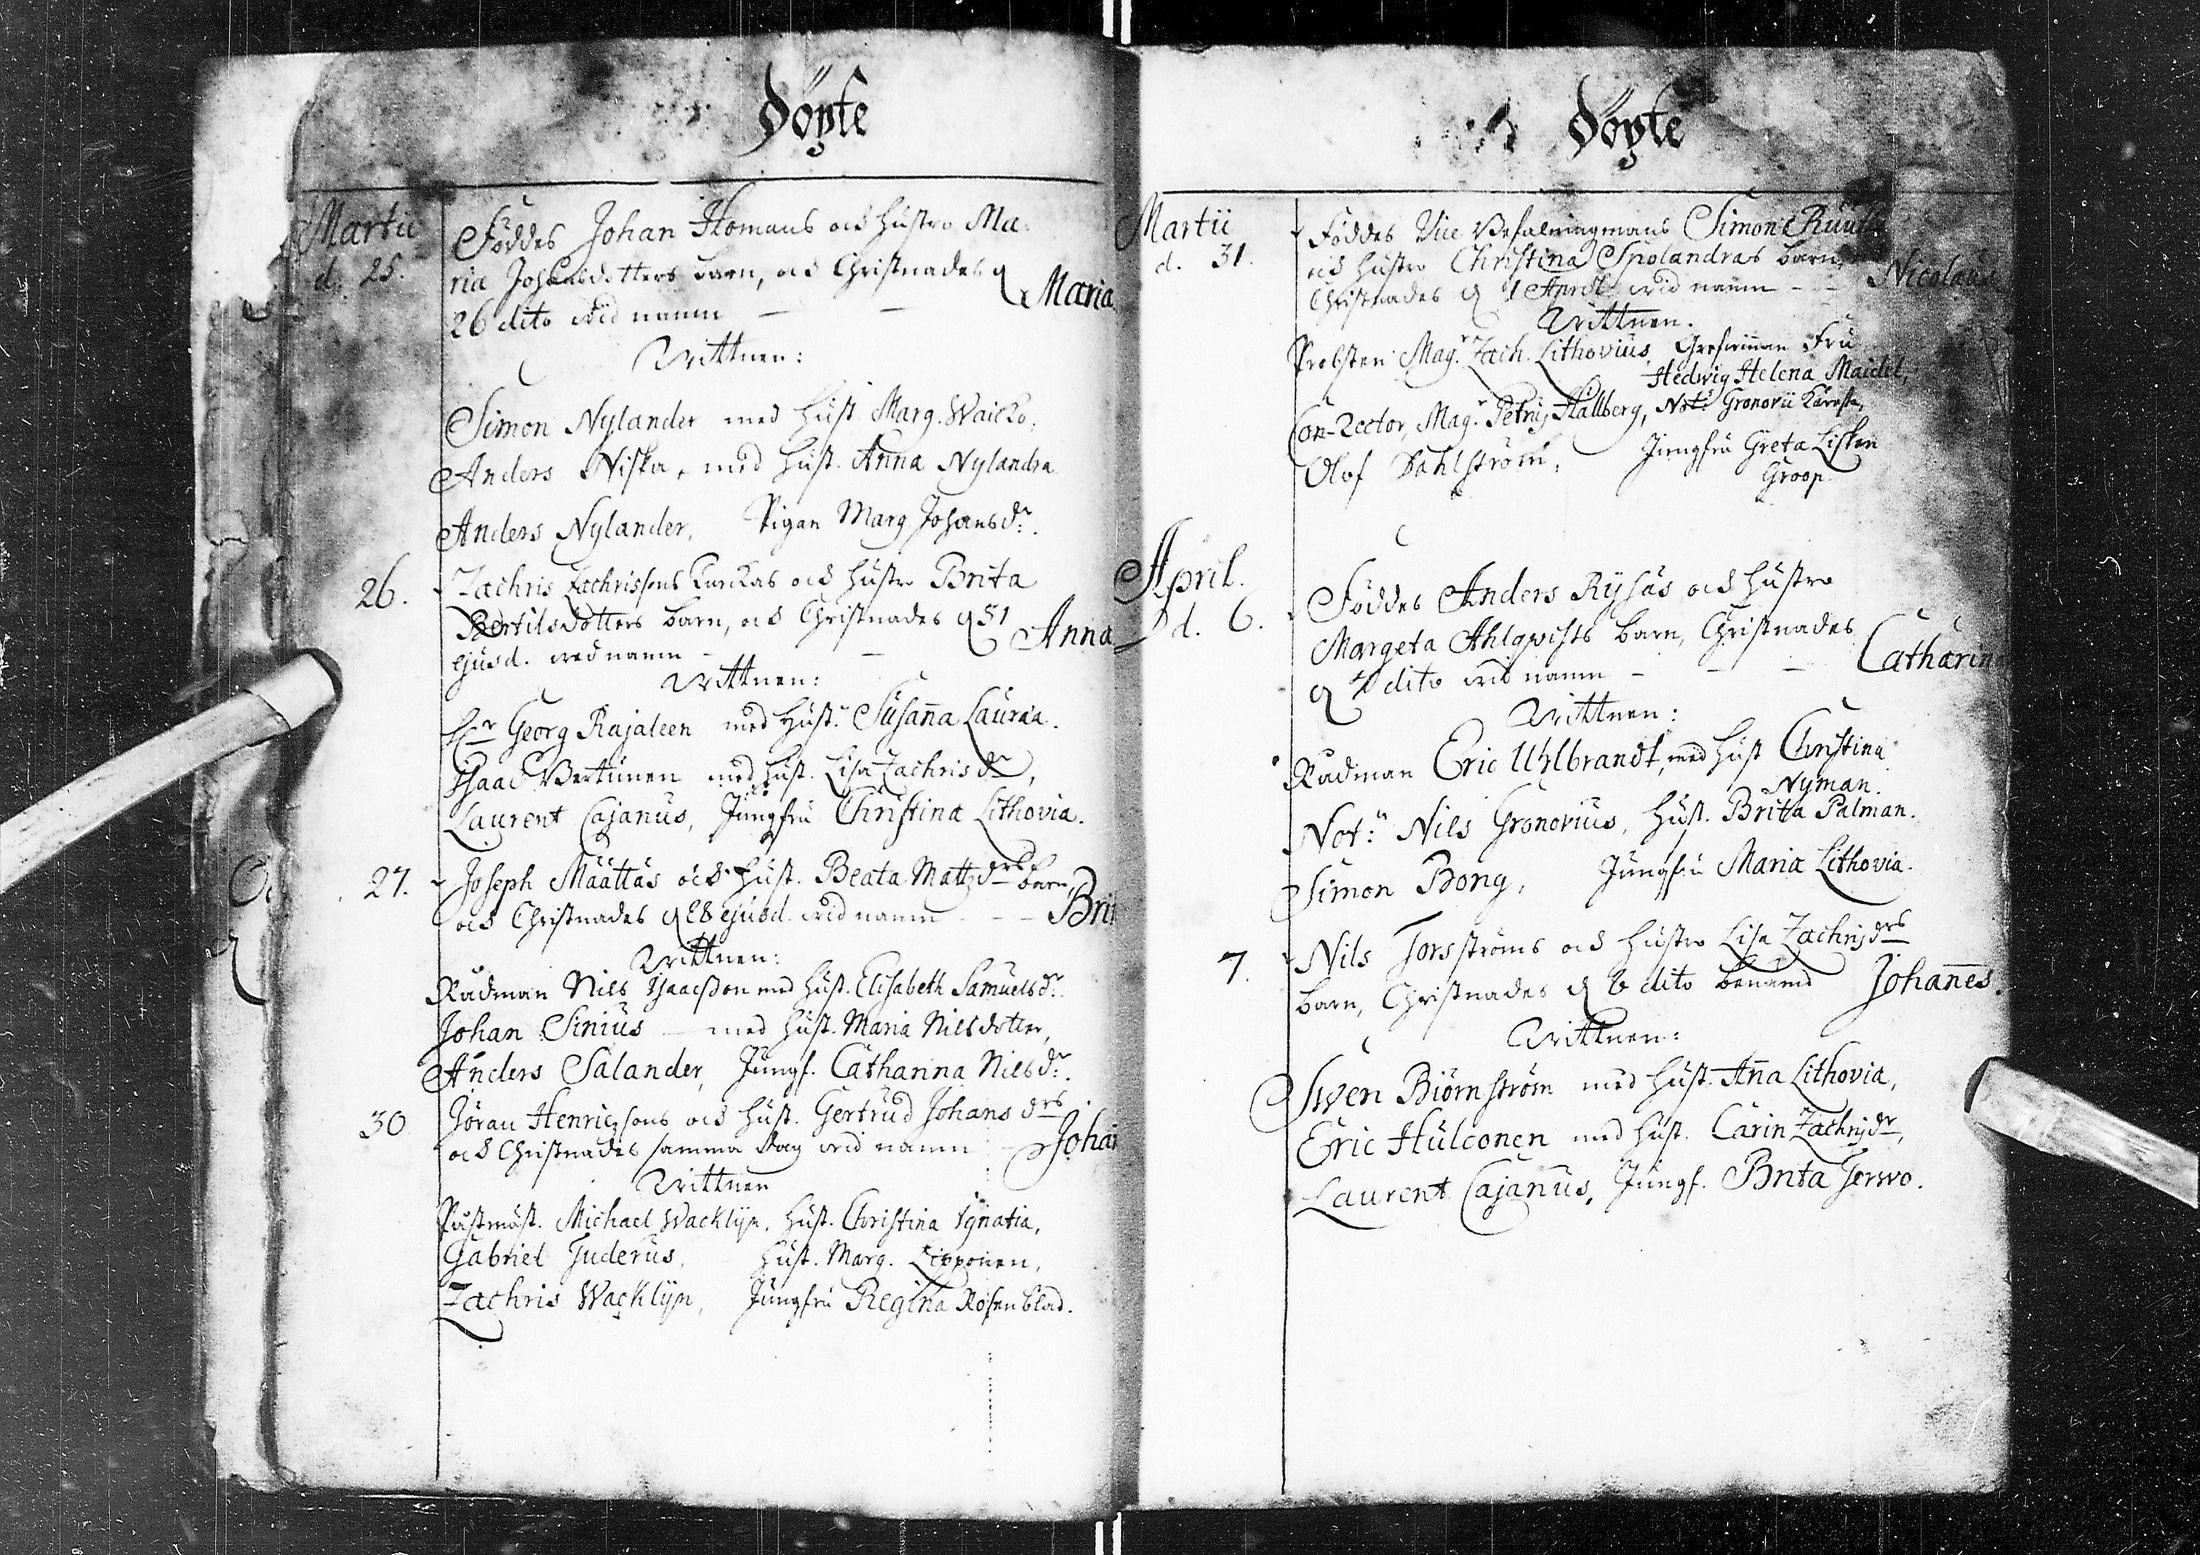 Döpte
Martii
d. 25.
Föddes Johan Homans och hustro Ma-
ria Johansdotters barn, och Christnades d
26 dito wid namn — — Maria
Wittnen:
Simon Nylander med hust. Marg. Waicko,
Anders Niska, med hust. Anna Nylandra
Anders Nylander, Pigan Marg Johansdr.
26. Zachris Zachrissons Kurckas och hustro Brita
Bertilsdotters barn, och Christnades d 31
ejusd. wid namn — — Anna
Wittnen:
Hr Georg Rajaleen med Hust. Susanna Lauræa.
Isaac Wertunen med hust. Lisa Zachrisdr,
Laurent Cajanus, Jungfru Christina Lithovia.
27. Joseph Määttäs och hust. Beata Mattzdrs barn,
och Christnades d 28 ejusd. wid namn — — Bri
Wittnen:
Rådman Nils Isaacsson med hust. Elisabeth Samuelsdr.
Johan Sinius — med hust. Maria Nilsdotter,
Anders Salander, Jungf. Catharina Nilsdr.
30 Jöran Henricssons och hust. Gertrud Johansdrs
och Christnades samma dag wid namn — Johan
Wittnen
Påstmäst. Michael Wacklijn, hust. Christina Ignatia,
Gabriel Tuderus, hust. Marg. Lipponen,
Zachris Wacklijn, Jungfru Regina Rosenblad.
Döpte
Martii
d. 31.
Föddes Vice Befalningmans Simon Ruuth
och hustro Christina Spolandras barn,
Christnades d 1 April wid namn — — Nicolaus
Wittnen.
Probsten Magr Zach. Lithovius, Grefwinnan Fru
Hedwig Helena Maidel,
Con-Rector, Magr Petrus Hallberg, Not: Gronovii Käresta,
Olof Dahlström, Jungfru Greta Lisken
Groop
April.
d. 6.
Föddes Anders Rysäs och hustro
Margeta Ahlqvists barn, Christnades
d 7 dito wid namn — — — Catharin
Wittnen:
Rådman Eric Uhlbrandt, med hust Christina
Nyman.
Not: Nils Gronovius, hust. Brita Palman.
Simon Bong, Jungfru Maria Lithovia.
7. Nils Torsströms och hustro Lisa Zachrisdrs
barn, Christnades d 8 dito benämd Johannes.
Wittnen:
Swen Biörnström med hust. Anna Lithovia,
Eric Hulconen med hust. Carin Zachrisdr,
Laurent Cajanus, Jungf. Brita Jerwo.